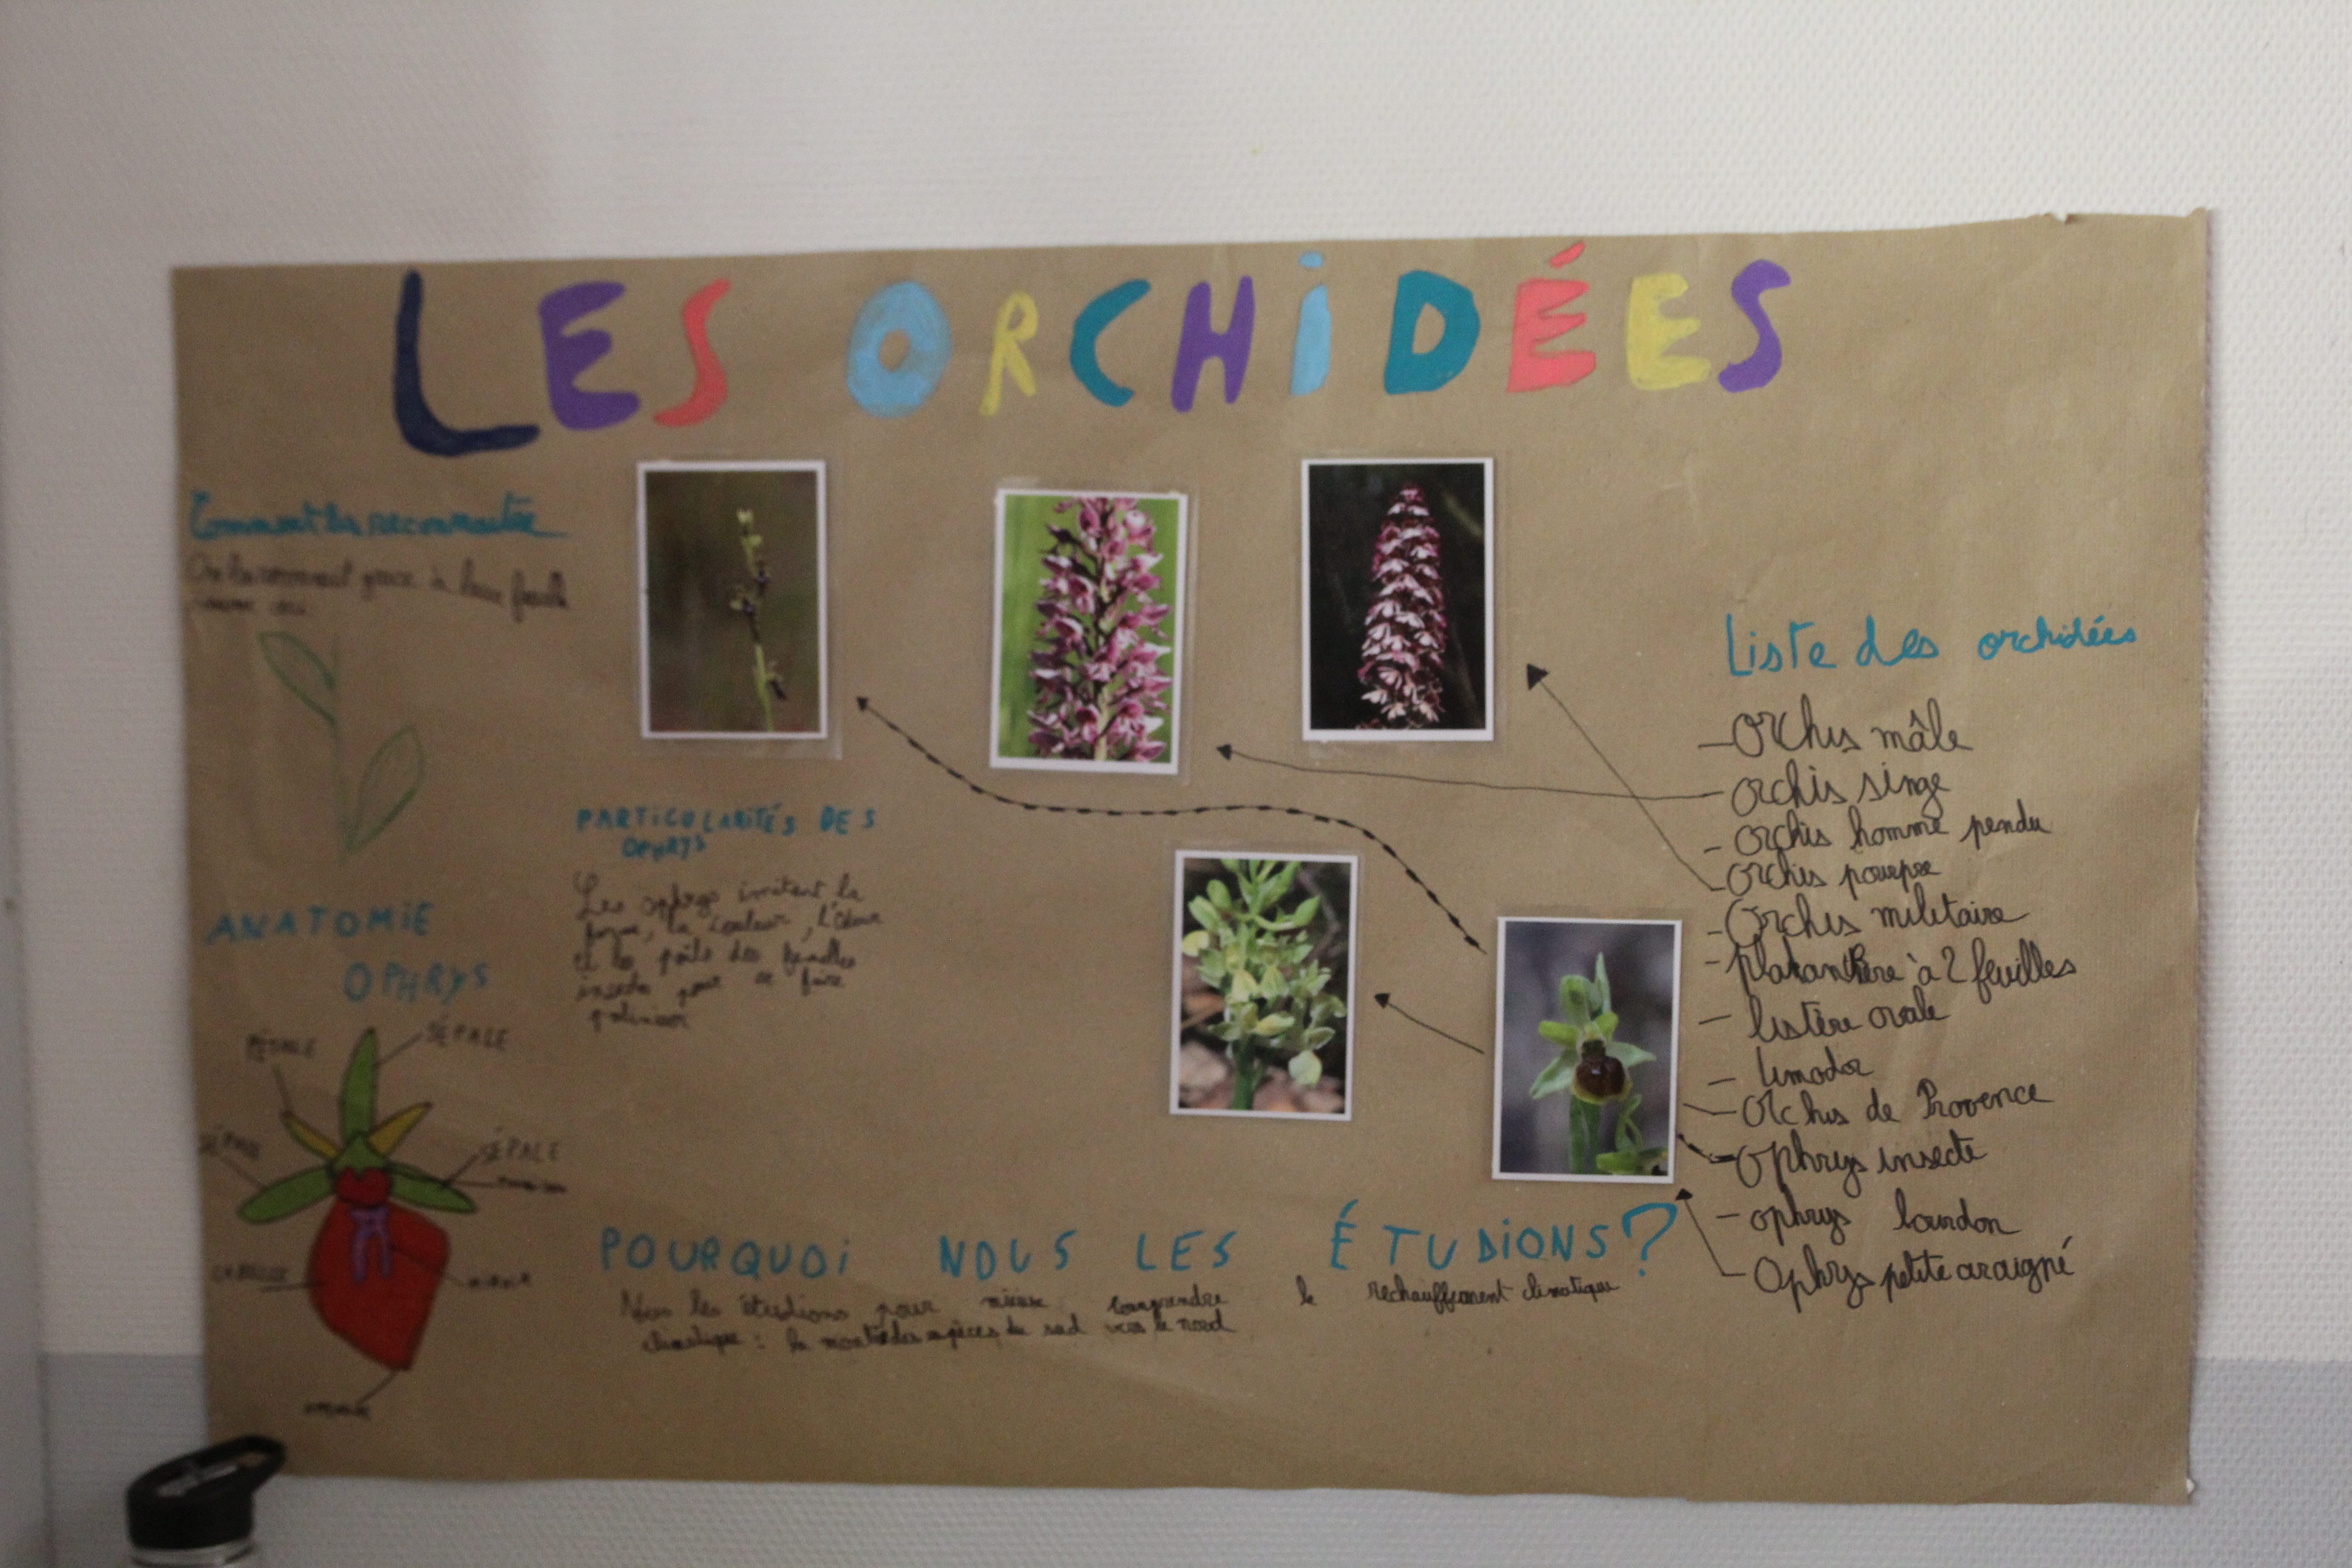 LES ORCHIDÉES
Comment les reconnaitre
On les reconnait grace à leur feuille
comme ceci
ANATOMIE
OPHRYS
PÉTALE
SÉPALE
SÉPALE
SÉPALE
LABELLE
PARTICULARITÉS DES
OPHRYS
Les ophrys imitent la
forme, la couleur, l'odeur
et les poils des femelles
insectes pour se faire
poliniser
POURQUOI NOUS LES ÉTUDIONS?
Nous les étudions pour mieux comprendre le réchauffement climatique
climatique : la montée des espèces du sud vers le nord
Liste des orchidées
- Orchis mâle
orchis singe
- orchis homme pendu
orchis pourpre
- Orchis militaire
- platanthère à 2 feuilles
- listère ovale
- limodor
- Orchis de Provence
- Ophrys insecte
- ophrys bourdon
- Ophrys petite araigné